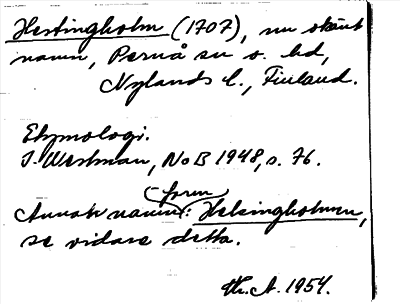 Hertingholm (1707), nu okänt
namn, Pernå sn o. hd,
Nylands l., Finland.
Etymologi.
I. Westman, NoB 1948, s. 76.
form
Annat namn: Helsingholmen,
se vidare detta.
Th. A. 1954.